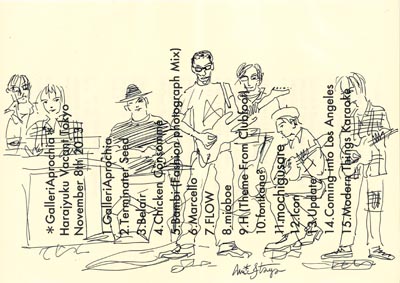 *GalleriAprochia*
Harajyuku Vacant Tokyo
November 8th 2013
1.GalleriAprochia
2.Terminater Seed
3.Belair
4.Chicken Consomme
5.Bambi (Fashion photograph Mix)
6.Marcello
7.FLOW
8.mioboe
9.H (Theme From Clubfoot)
11.mochigusare
12.Icon
13.Update
14.Coming into Los Angeles
15.Modern Things Karaoke